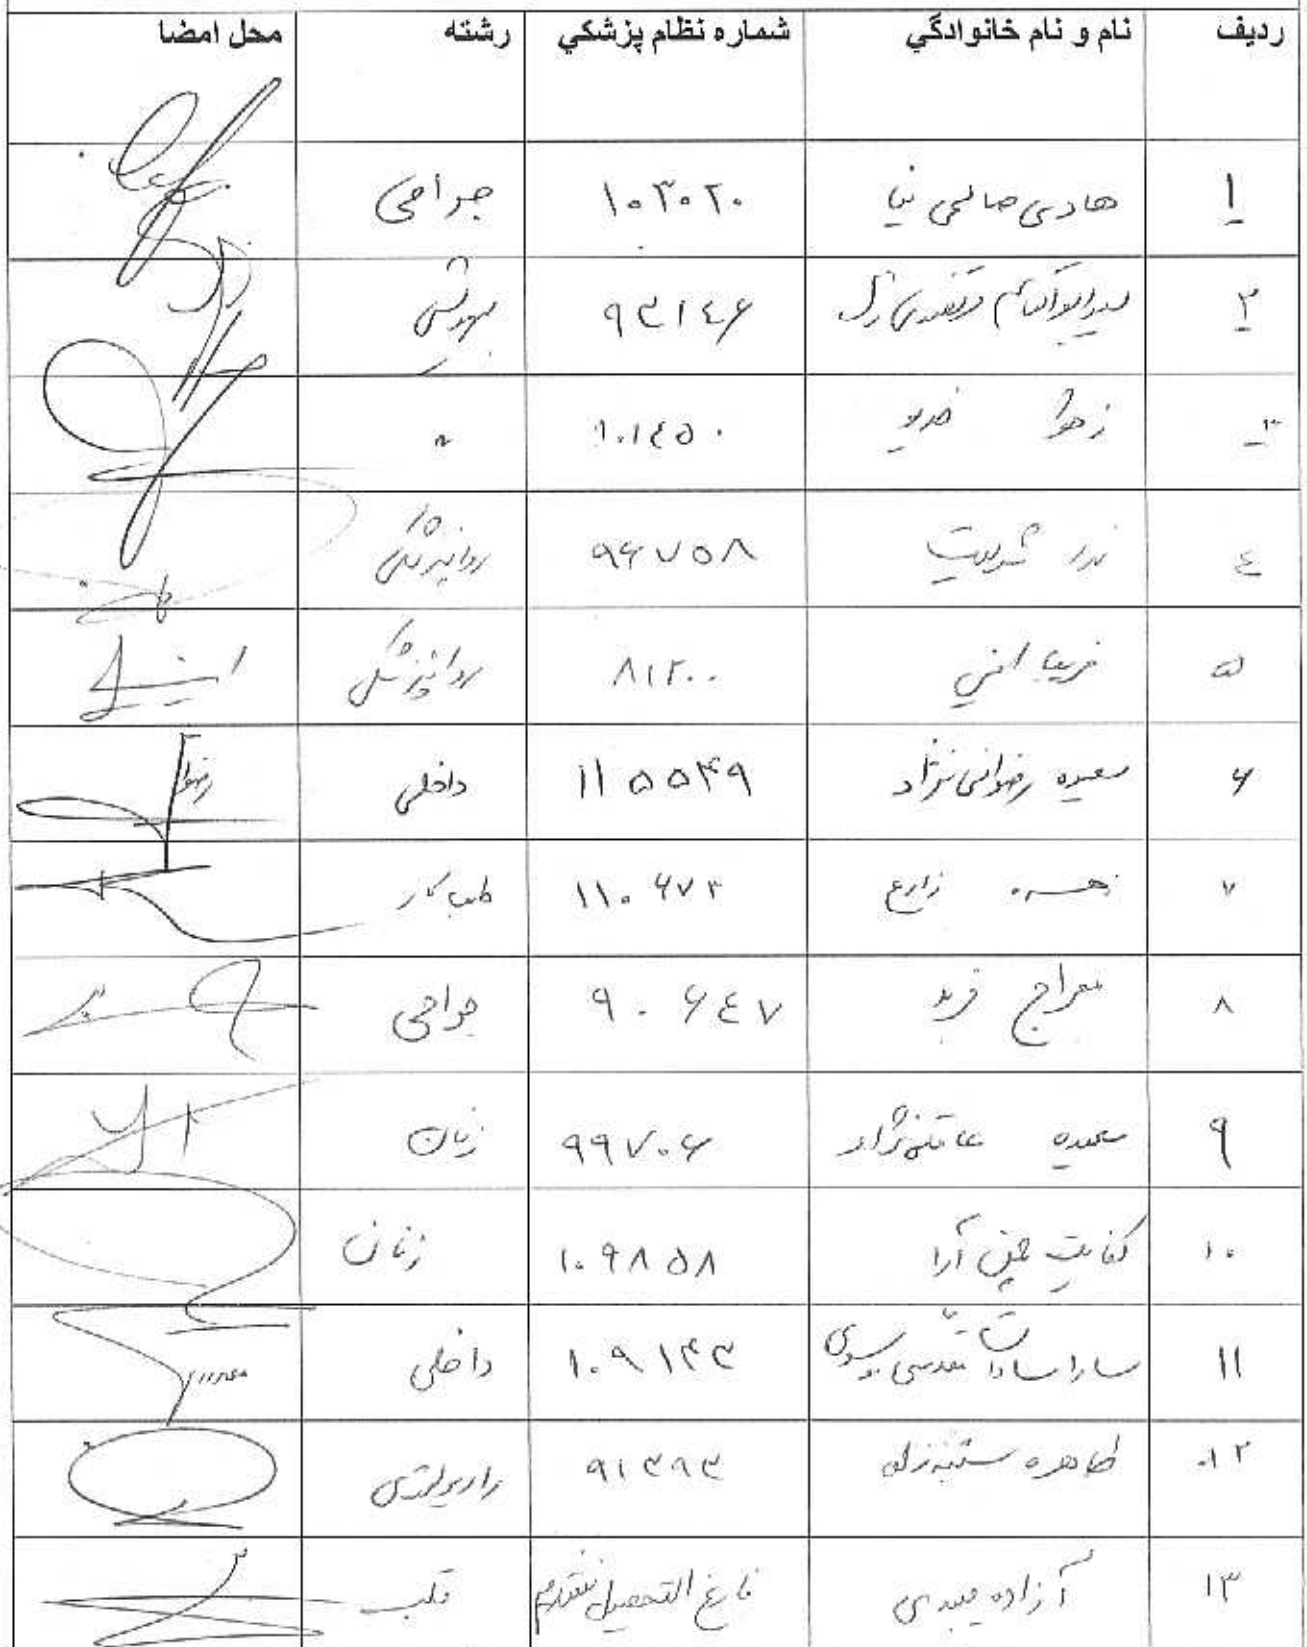 ردیف نام و نام خانوادگي شماره نظام پزشكي رشته محل امضا
۱ هادی صالحی نیا ۱۰۳۰۲۰ جراحی
۲ سیدابوالقاسم ۹۳۱۴۶ بیهوشی
۳ زهرا خدیو ۱۰۱۴۵۰ "
۴ ندا شریعت ۹۶۷۵۸ روانپزشکی
۵ فریبا امنی ۸۱۲۰۰ روانپزشکی
۶ سعیده رضوانی نژاد ۱۱۵۵۴۹ داخلی
۷ زهره زارع ۱۱۰۶۷۳ طب کار
۸ معراج فرید ۹۰۶۴۷ جراحی
۹ سعیده عاقلی نژاد ۹۹۷۰۶ زنان
۱۰ کفایت چمن آرا ۱۰۹۸۵۸ زنان
۱۱ سارا سادات مقدسی موسوی ۱۰۹۱۴۳ داخلی
۱۲ طاهره ۹۱۳۹۳ رادیولوژی
۱۳ آزاده میبدی فارغ التحصیل قلب